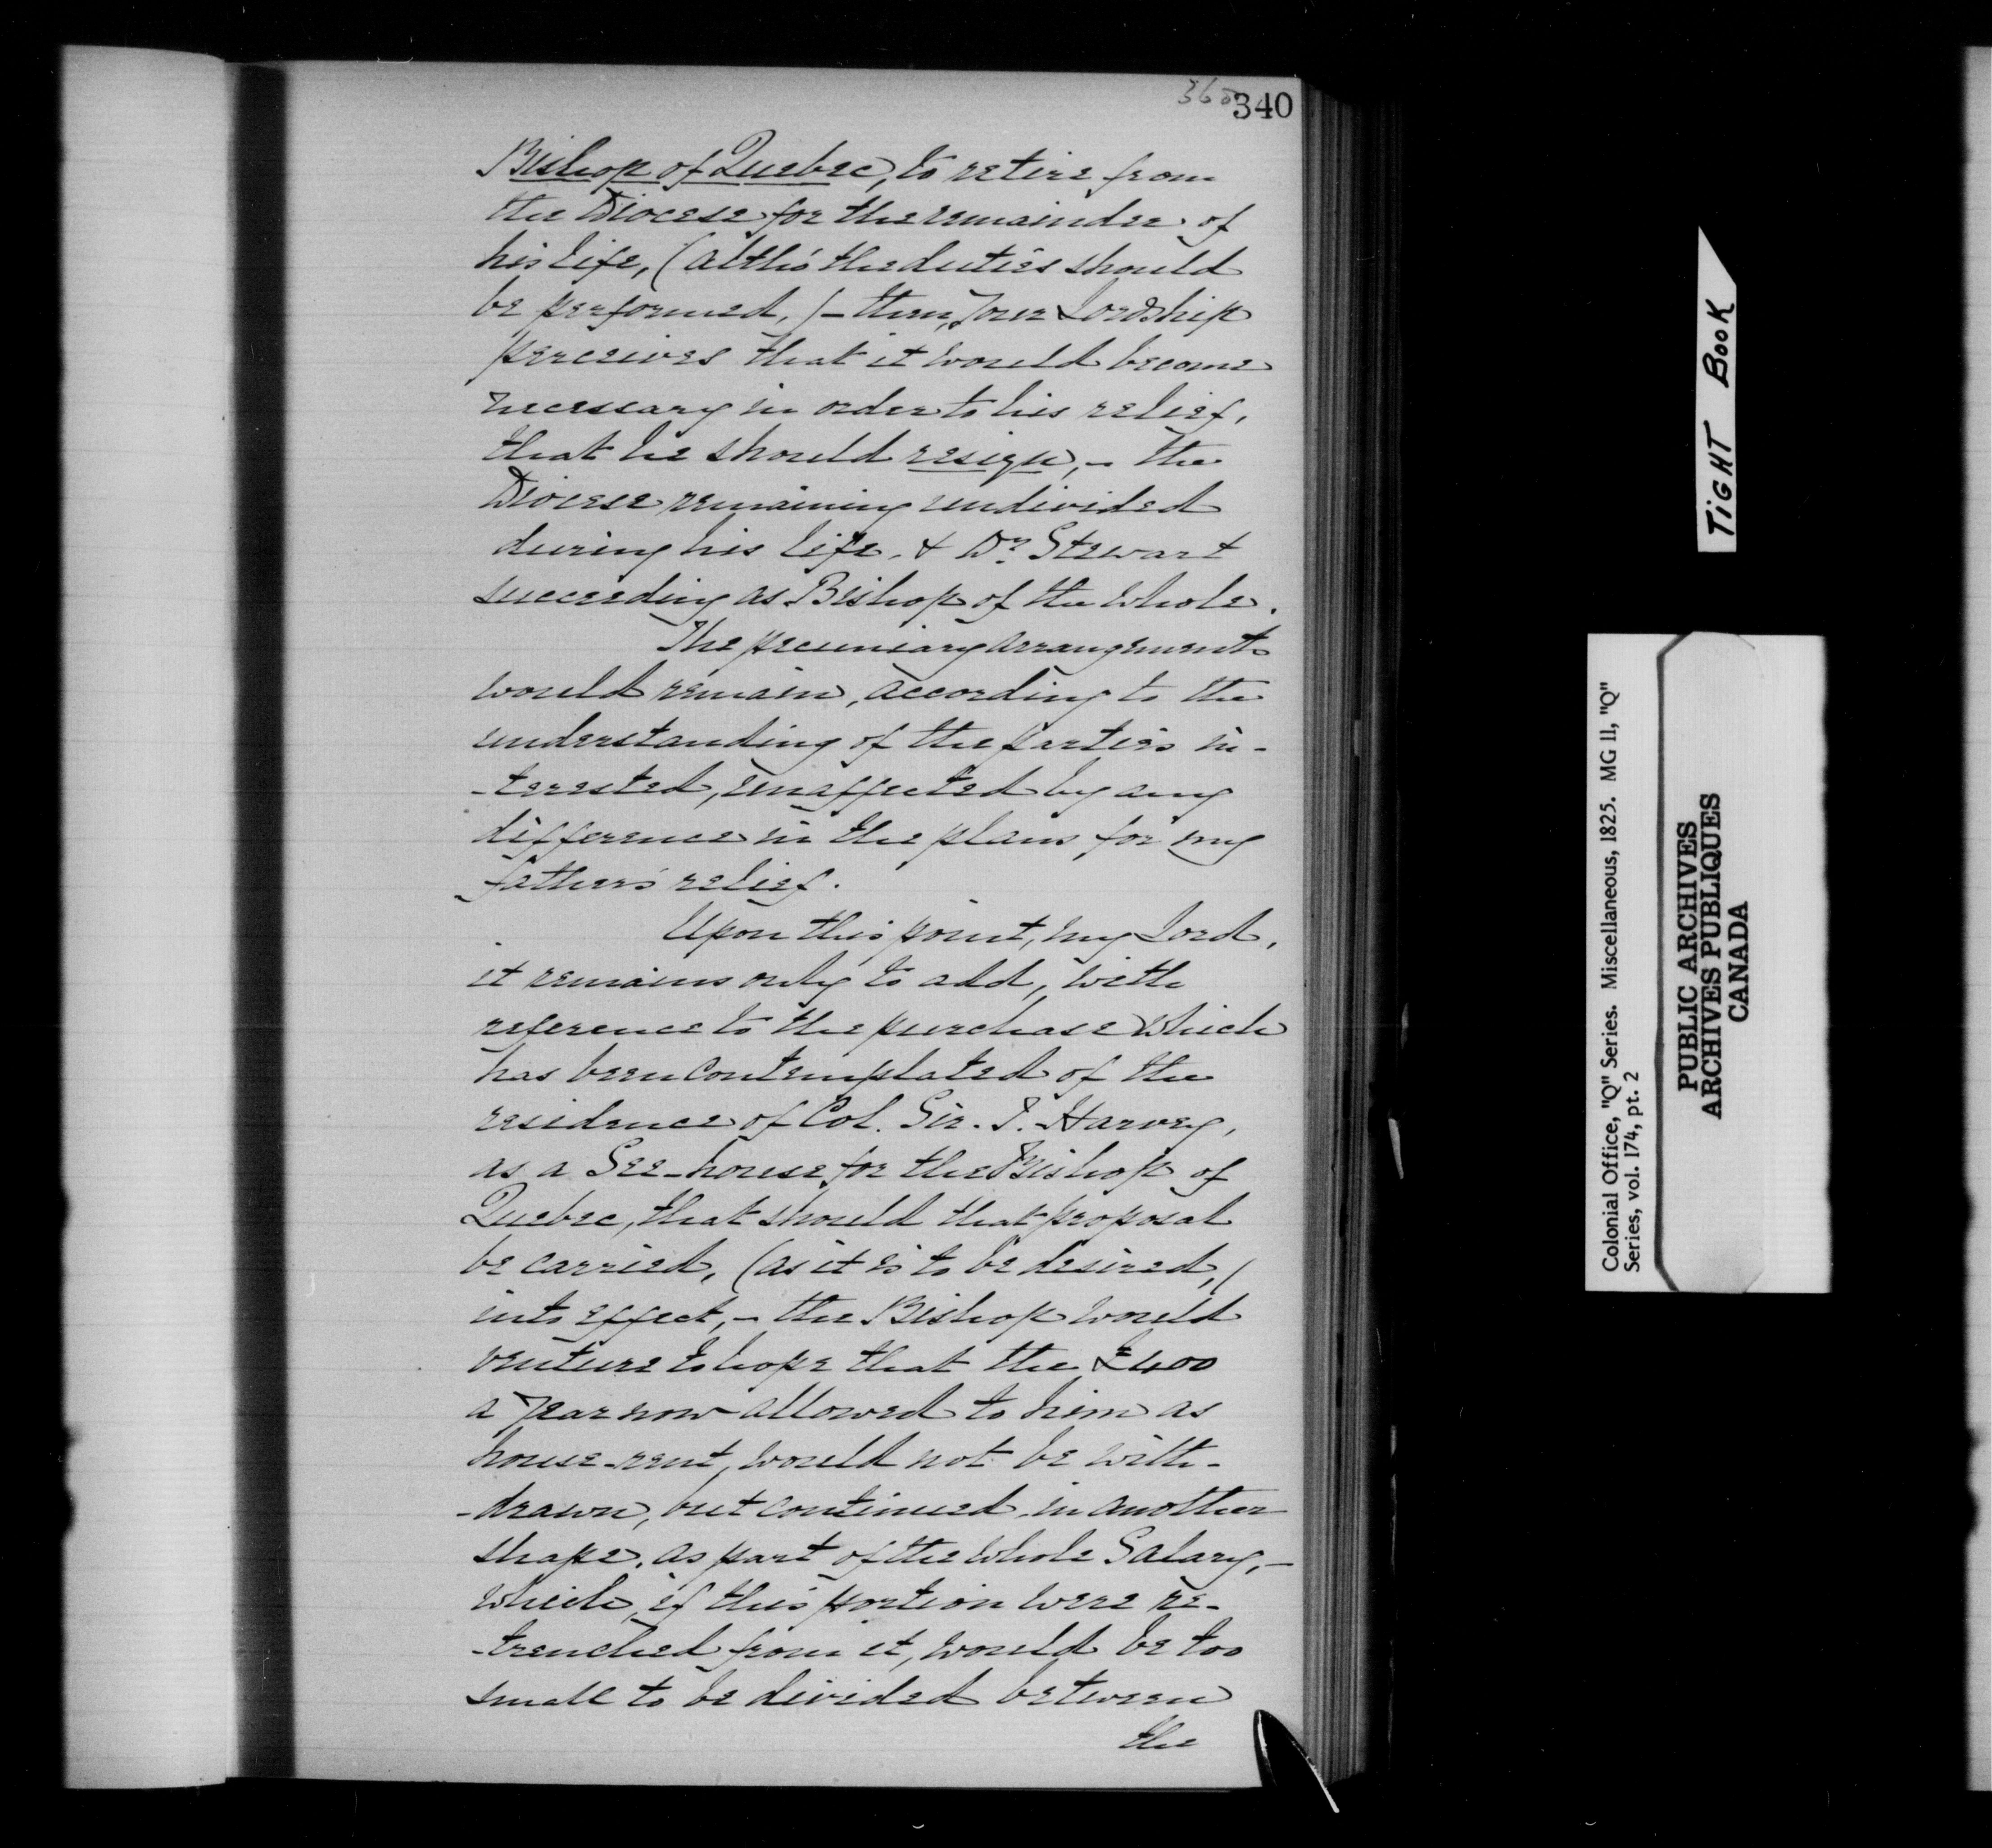 365
340
Bishop of Quebec, to retire from
the Diocese for the remainder of
his life, (altho' the duties should
be performed,) – then, Your Lordship
perceives that it would become
necessary in order to his relief,
that he should resign, – the
Diocese remaining undivided
during his life, & Dr. Stewart
succeeding as Bishop of the whole.
The pecuniary arrangements
would remain, according to the
understanding of the parties in-
-terested, unaffected by any
difference in the plans for my
father's relief.
Upon this point, my Lord,
it remains only to add, with
reference to the purchase which
has been contemplated of the
residence of Col. Sir. J. Harvey,
as a See-house for the Bishop of
Quebec, that should that proposal
be carried, (as it is to be desired,)
into effect, – the Bishop would
venture to hope that the £400
a year now allowed to him as
house-rent, would not be with-
-drawn, but continued in another
shape, as part of the whole Salary, –
which, if this portion were re-
-trenched from it, would be too
small to be divided between
the
TIGHT BOOK
Colonial Office, "Q" Series. Miscellaneous, 1825. MG 11, "Q"
Series, vol. 174, pt. 2
PUBLIC ARCHIVES
ARCHIVES PUBLIQUES
CANADA